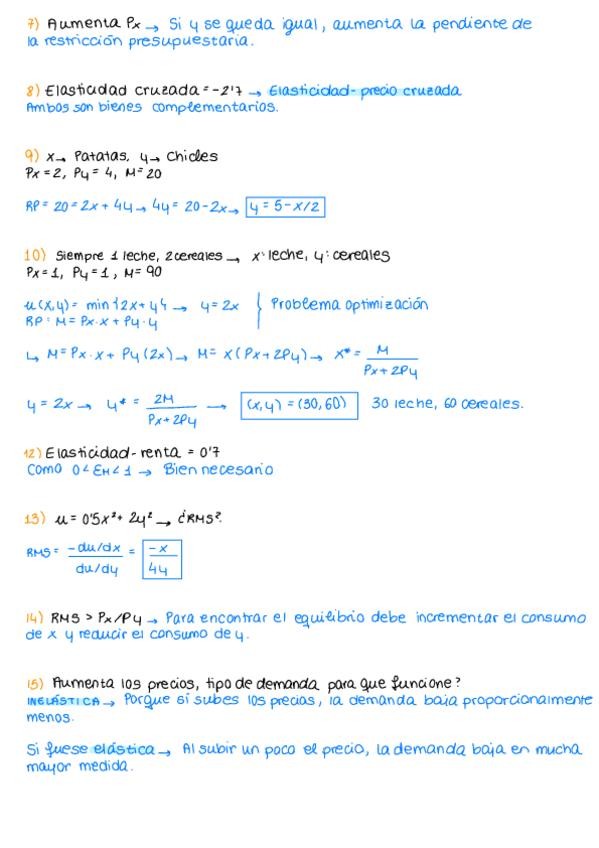 7) Aumenta Px → Si y se queda igual, aumenta la pendiente de
la restricción presupuestaria.
8) Elasticidad cruzada = -2'7 → Elasticidad-precio cruzada
Ambos son bienes complementarios.
9) x → Patatas, y → Chicles
Px = 2, Py = 4, M = 20
RP = 20 = 2x + 4y → 4y = 20 - 2x → y = 5 - x/2
10) Siempre 1 leche, 2 cereales → x: leche, y: cereales
Px = 1, Py = 1, M = 90
u(x,y) = min{2x + y} → y = 2x } Problema optimización
RP: M = Px·x + Py·y
↳ M = Px·x + Py(2x) → M = x(Px + 2Py) → x* = M / Px + 2Py
y = 2x → y* = 2M / Px + 2Py → (x,y) = (30,60) 30 leche, 60 cereales.
12) Elasticidad-renta = 0'7
Como 0 < EM < 1 → Bien necesario
13) u = 0'5x² + 2y² → ¿RMS?
RMS = -du/dx / du/dy = -x / 4y
14) RMS > Px/Py → Para encontrar el equilibrio debe incrementar el consumo
de x y reducir el consumo de y.
15) Aumenta los precios, tipo de demanda para que funcione?
INELÁSTICA → Porque si subes los precios, la demanda baja proporcionalmente
menos.
Si fuese elástica → Al subir un poco el precio, la demanda baja en mucha
mayor medida.